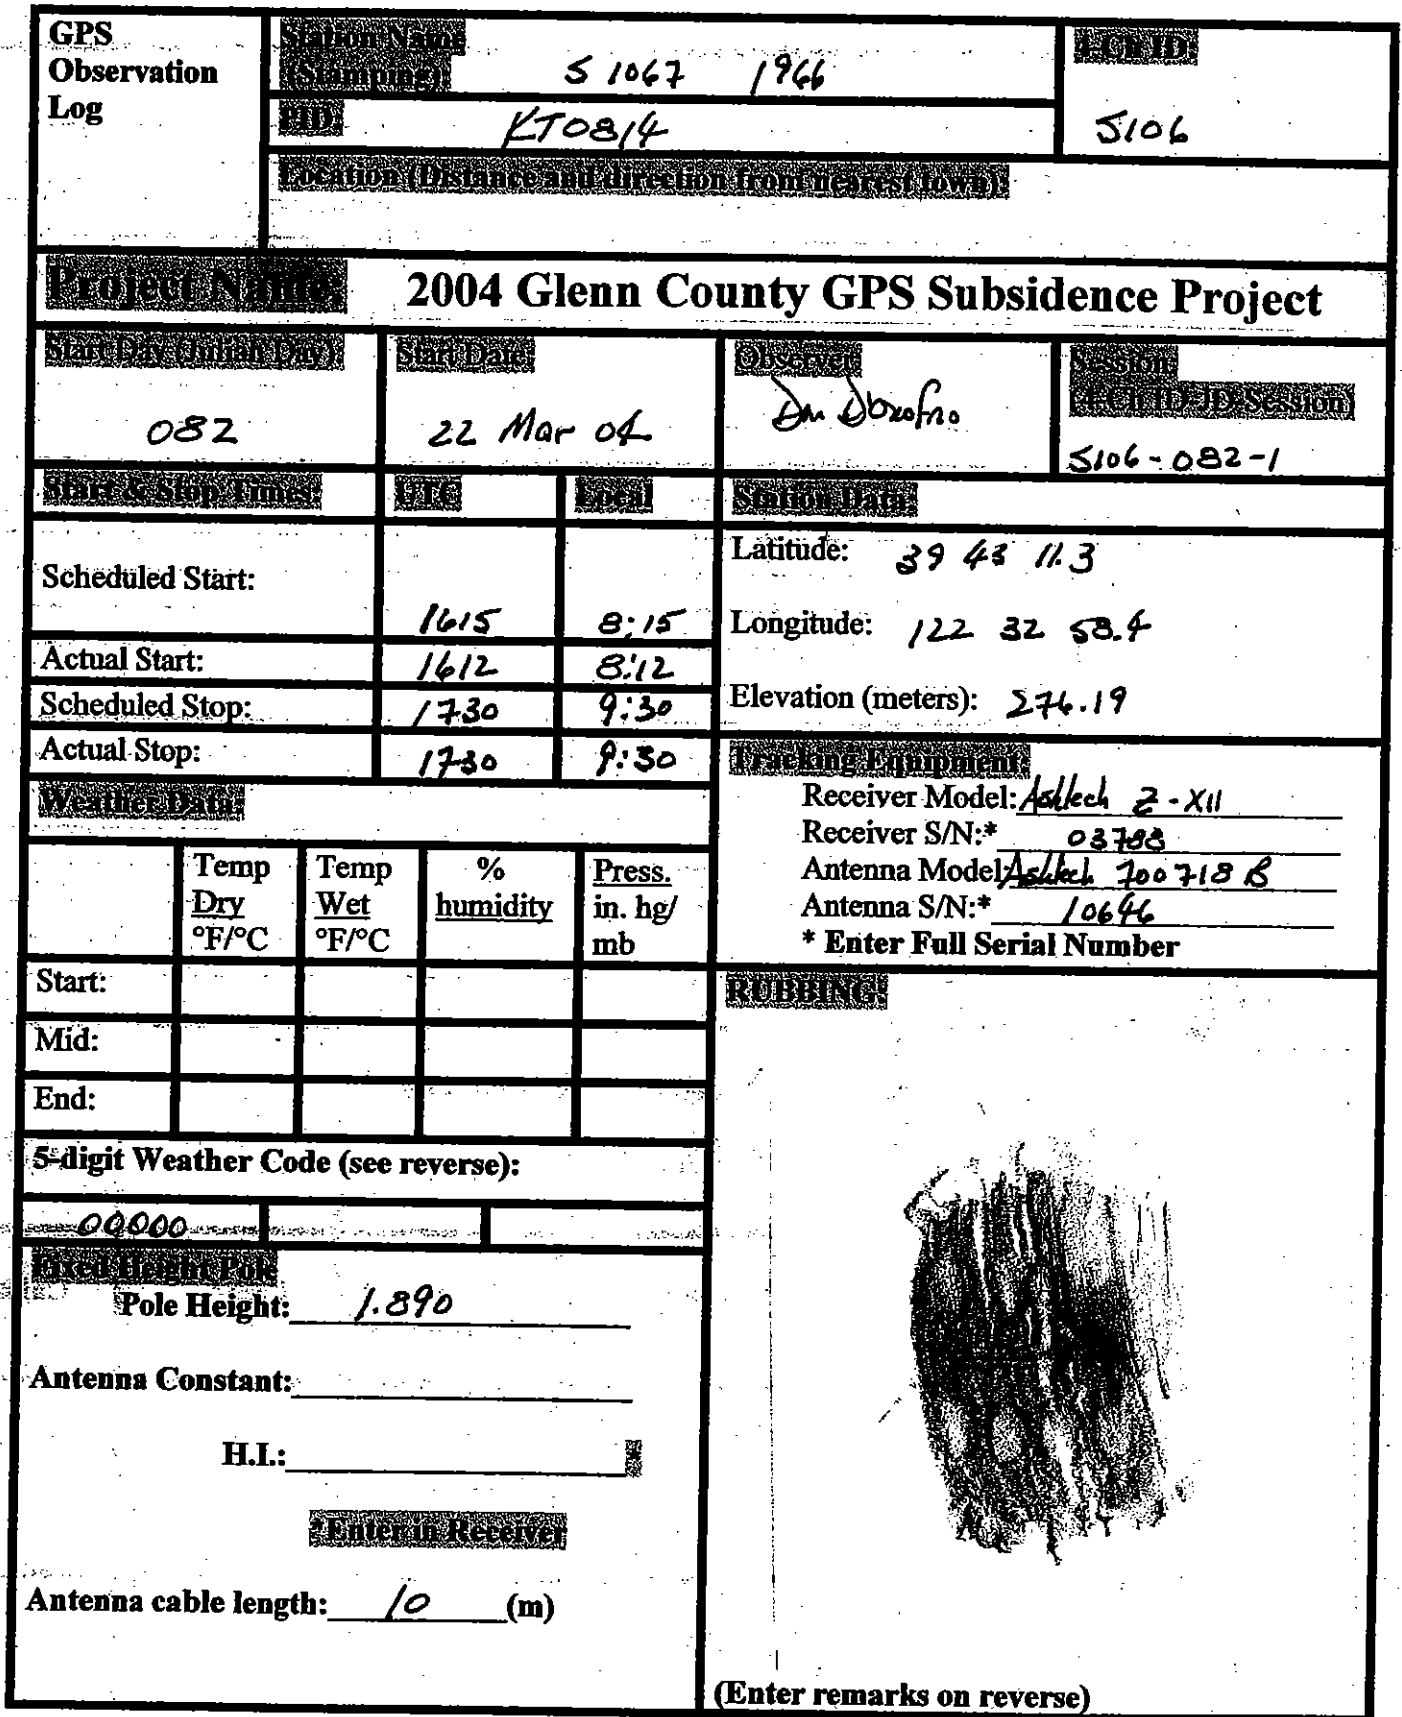 GPS
Observation
Log
Station Name
(Stamping):
S 1067 1966
4-Ch ID:
S106
PID:
KT0814
Location (Distance and direction from nearest town):
Project Name: 2004 Glenn County GPS Subsidence Project
Start Day (Julian Day):
082
Start Date:
22 Mar 04
Observer:
Session:
(4-Ch ID-JD-Session)
S106-082-1
Start & Stop Times: UTC Local
Scheduled Start: 1615 8:15
Actual Start: 1612 8:12
Scheduled Stop: 1730 9:30
Actual Stop: 1730 9:30
Station Data:
Latitude: 39 43 11.3
Longitude: 122 32 58.4
Elevation (meters): 276.19
Tracking Equipment:
Receiver Model: Ashtech Z-XII
Receiver S/N:*
Antenna Model: Ashtech 700718 B
Antenna S/N:* 10646
* Enter Full Serial Number
Weather Data:
Temp Dry °F/°C
Temp Wet °F/°C
% humidity
Press. in. hg/ mb
Start:
Mid:
End:
5-digit Weather Code (see reverse):
00000
Fixed Height Pole
Pole Height: 1.890
Antenna Constant:
H.I.: *
*Enter in Receiver
Antenna cable length: 10 (m)
RUBBING:
(Enter remarks on reverse)